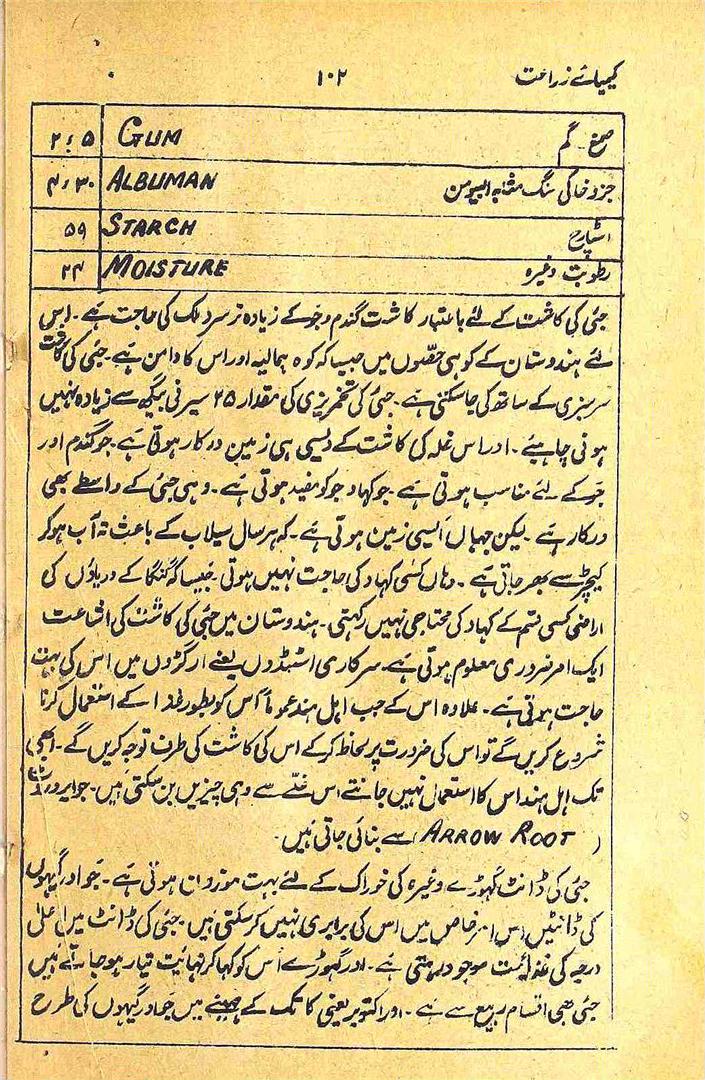 کیمیائے زراعت ۱۰۲
صمغ - گم GUM ۲؛۵
جزو خاکی سنگ مشابہ البیومن ALBUMAN ۴؛۳۰
اسٹارچ STARCH ۵۹
رطوبت وغیرہ MOISTURE ۲۴
جئی کی کاشت کے لئے باعتبار کاشت گندم و جَو کے زیادہ تر سرد ملک کی حاجت ہے ۔ اس
لئے ہندوستان کے کوہی حصّوں میں جیسا کہ کوہ ہمالیہ اور اس کا دامن ہے جئی کی کاشت
سرسبزی کے ساتھ کی جا سکتی ہے ۔ جئی کی تخمریزی کی مقدار ۲۵ سیر فی بیگھ سے زیادہ نہیں
ہونی چاہیئے ۔ اور اس غلہ کی کاشت کے لئے ویسی ہی زمین درکار ہوتی ہے ۔ جو گندم اور
جَو کے لئے مناسب ہوتی ہے جو کہاد جو کو مفید ہوتی ہے ۔ وہی جئی کے واسطے بھی
درکار ہے لیکن جہاں ایسی زمین ہوتی ہے ۔ کہ ہر سال سیلاب کے باعث تہ آب ہو کر
کیچڑ سے بھر جاتی ہے ۔ وہاں کسی کہاد کی حاجت نہیں ہوتی ۔ جیسا کہ گنگا کے دریاؤں کی
اراضی کسی قسم کے کہاد کی محتاجی نہیں رکھتی ۔ ہندوستان میں جئی کی کاشت کی اشاعت
ایک امر ضروری معلوم ہوتی ہے ۔ سرکاری اسٹبڈوں یعنے ارگڑوں میں اس کی بہت
حاجت ہوتی ہے ۔ علاوہ اس کے جب اہل ہند عموماً اس کو بطور غذا کے استعمال کرنا
شروع کریں گے تو اس کی ضرورت پر لحاظ کر کے اس کی کاشت کی طرف توجہ کریں گے ۔ ابھی
تک اہل ہند اس کا استعمال نہیں جانتے اس غلّے سے وہی چیزیں بن سکتی ہیں ۔ جو ایروروٹ
( ARROW ROOT ) سے بنائی جاتی ہیں ۔
جئی کی ڈانٹ گھوڑے وغیرہ کی خوراک کے لئے بہت موزوں ہوتی ہے ۔ جَو اور گیہوں
کی ڈانٹیں اس امر خاص میں اس کی برابری نہیں کر سکتی ہیں جئی کی ڈانٹ میں اعلیٰ
درجہ کی غذائیت موجود رہتی ہے ۔ اور گھوڑے اس کو کہا کر نہایت تیار ہو جاتے ہیں
جئی بھی اقسام ربیع سے ہے ۔ اور اکتوبر یعنی کاتک کے مہینے میں جَو اور گیہوں کی طرح